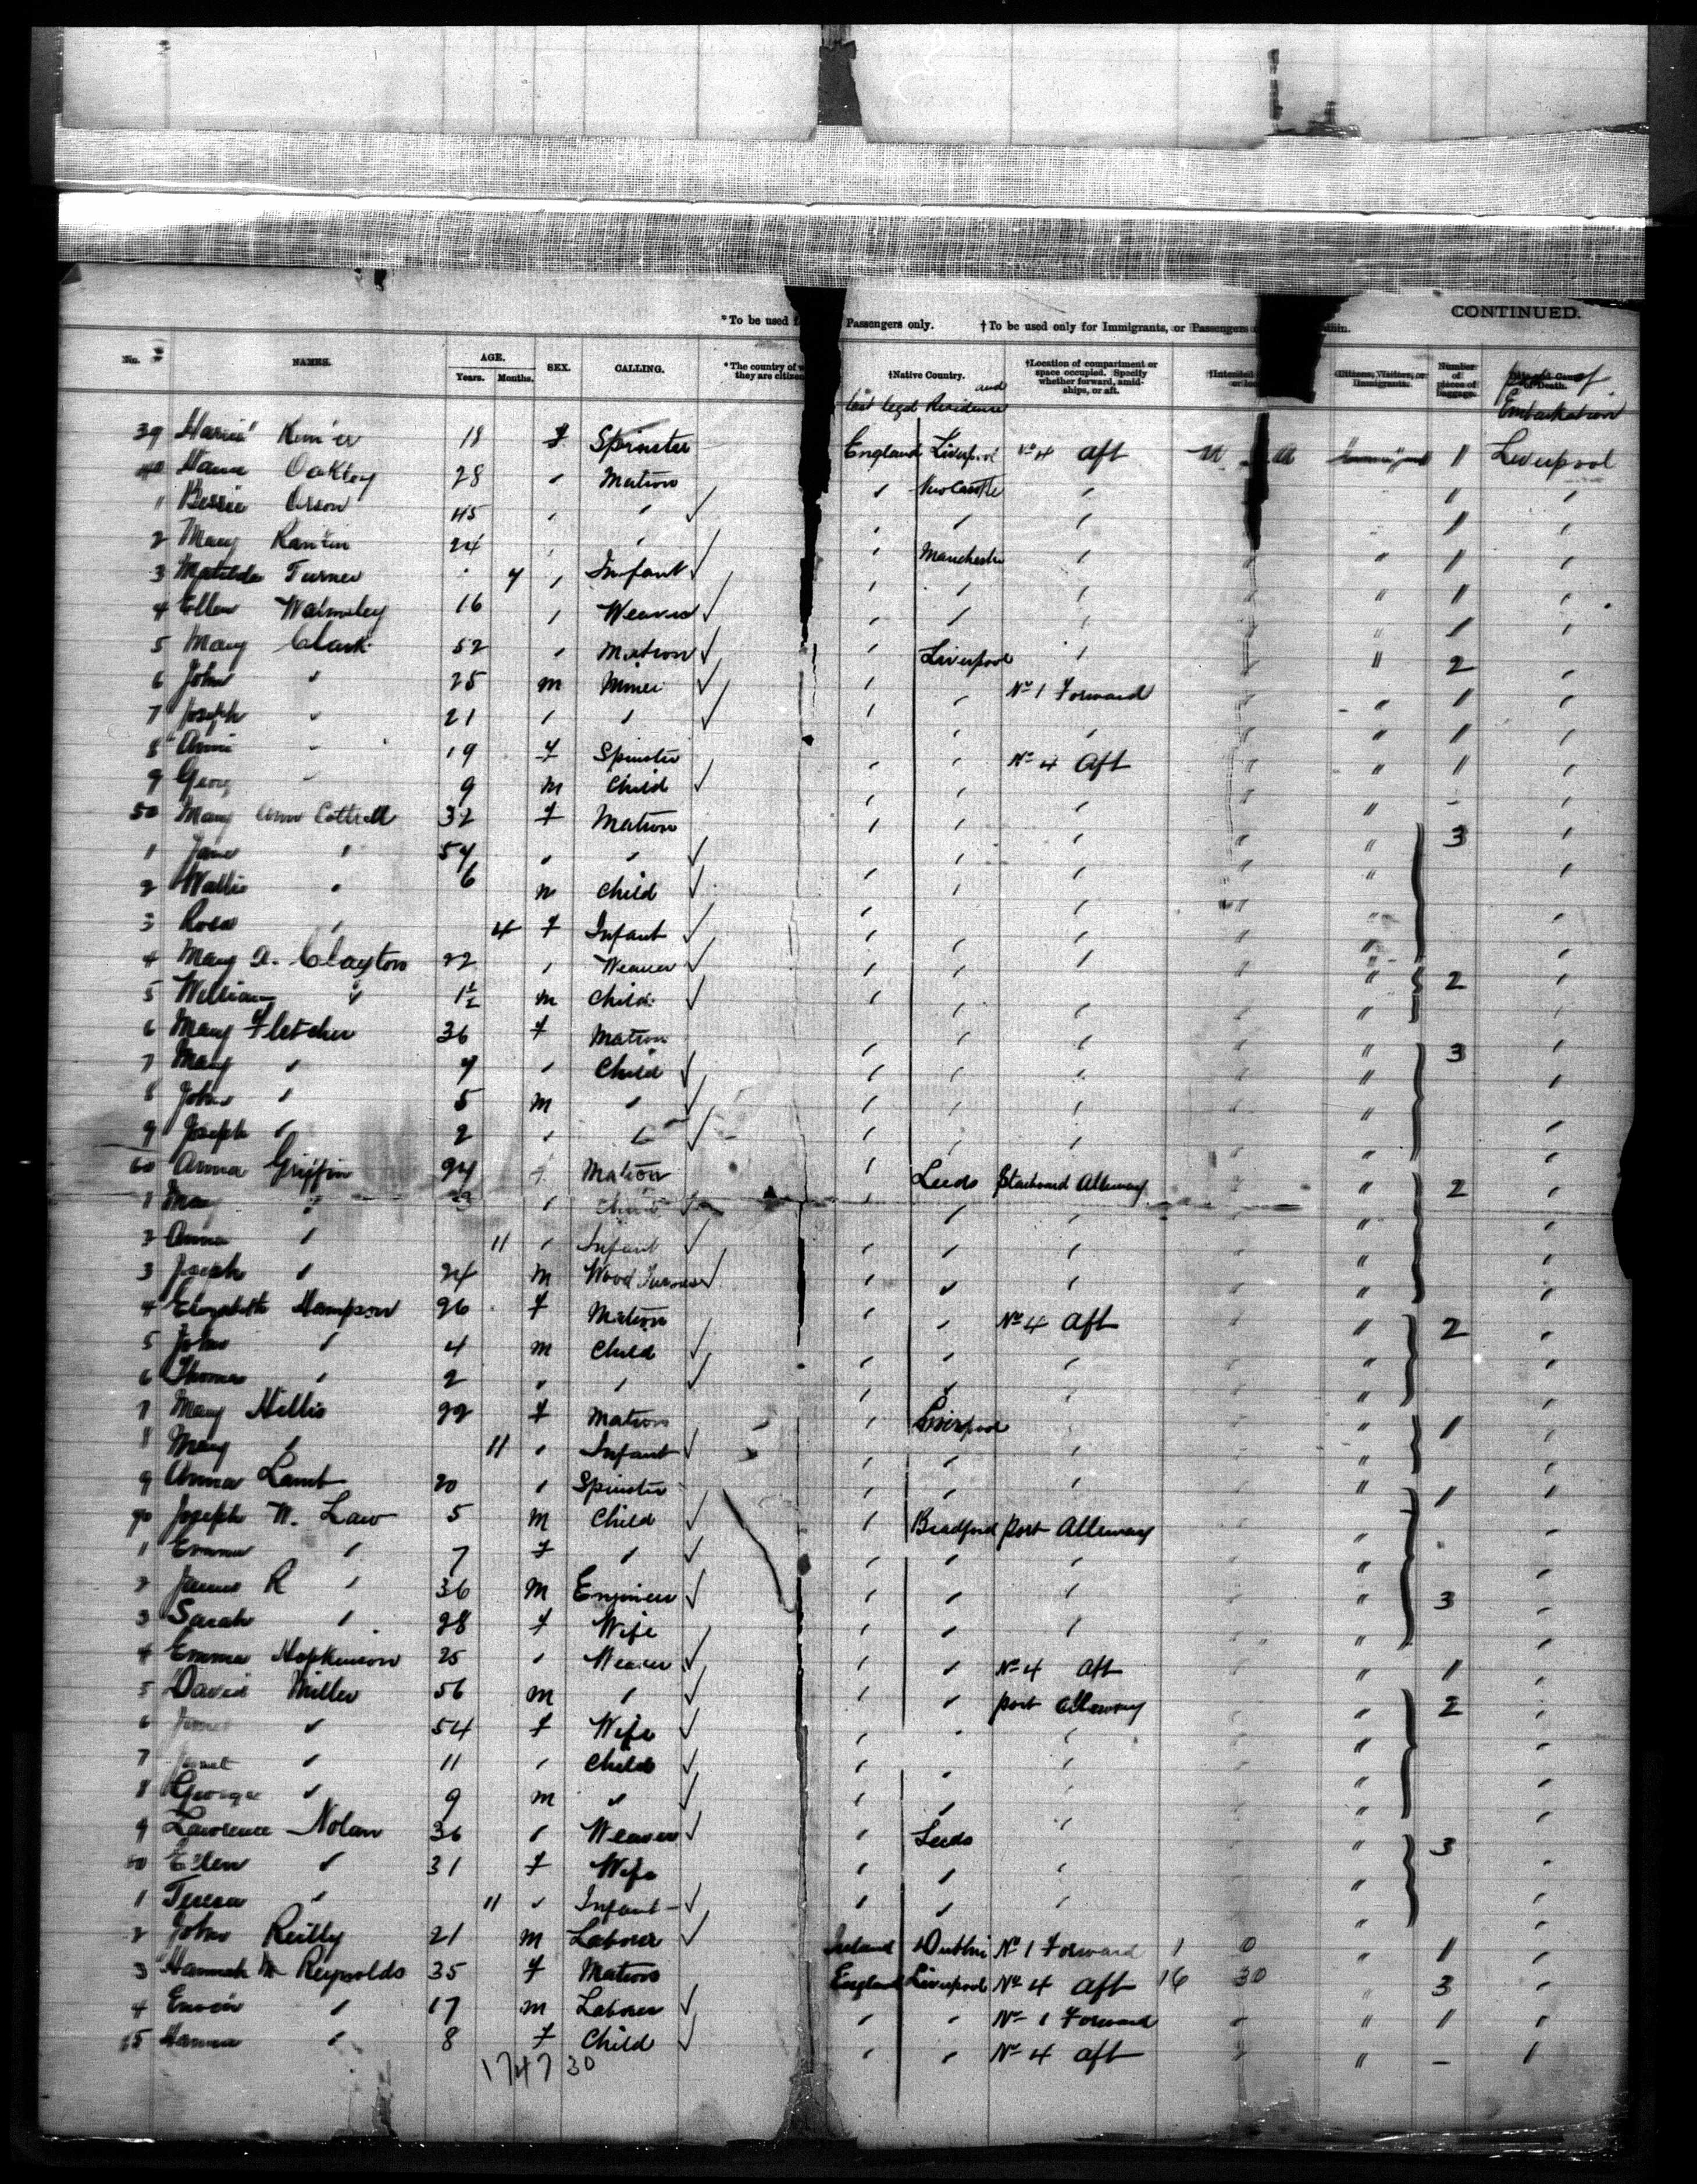 CONTINUED.
*To be used Passengers only. †To be used only for Immigrants, or Passengers
No. NAMES. AGE. Years. Months. SEX. CALLING. *The country of they are citizen †Native Country. †Location of compartment or space occupied. Specify whether forward, amidships, or aft. Citizens, Visitors, or Immigrants. Number of pieces of baggage. of Death.
and last legal Residence of Embarkation
39 18 f Spinster England Liverpool No 4 aft 1 Liverpool
40 Oakley 28 " Matron " New Castle " 1 "
1 Bessie Orson 45 " " ✓ " " " 1 "
2 Mary Rankin 24 " " ✓ " Manchester " " 1 "
3 Matilda Turner 7 " Infant ✓ " " " " 1 "
4 Ellen Walmsley 16 " Weaver ✓ " " " " 1 "
5 Mary Clark 52 " Matron ✓ " Liverpool " " 2 "
6 John " 25 m Miner ✓ " " No 1 Forward " 1 "
7 Joseph " 21 " " ✓ " " " " 1 "
8 Annie " 19 f Spinster " " No 4 Aft " 1 "
9 Georg " 9 m Child ✓ " " " " - "
50 Mary Ann Cottrell 32 f Matron " " " " 3 "
1 Jane " 54 " " ✓ " " " " "
2 Wallis " 6 m Child ✓ " " " " "
3 Rosa " 4 f Infant ✓ " " " " "
4 Mary A. Clayton 22 " Weaver ✓ " " " " 2 "
5 William " 1½ m Child ✓ " " " " "
6 Mary Fletcher 36 f Matron " " " " 3 "
7 Mary " 7 " Child ✓ " " " " "
8 John " 5 m " ✓ " " " " "
9 Joseph " 2 " " ✓ " " " " "
60 Anna Griffin 24 f Matron " Leeds Starboard Alleway " 2 "
1 May " 3 " Child ✓ " " " " "
2 Anna " 11 " Infant ✓ " " " " "
3 Joseph " 24 m Wood Turner ✓ " " " " "
4 Elizabeth Hampson 26 f Matron " " No 4 Aft " 2 "
5 John " 4 m Child ✓ " " " " "
6 Thomas " 2 " " ✓ " " " " "
7 Mary Hillis 22 f Matron " Liverpool " " 1 "
8 Mary " 11 " Infant ✓ " " " " "
9 Anna Lamb 20 " Spinster " " " " 1 "
70 Joseph W. Law 5 m Child ✓ " Bradford Port Alleway " "
1 Emma " 7 f " ✓ " " " " "
2 James R " 36 m Engineer ✓ " " " " 3 "
3 Sarah " 28 f Wife " " " " "
4 Emma Hopkinson 25 " Weaver ✓ " " No 4 Aft " 1 "
5 David Miller 56 m " ✓ " " Port Alleway " 2 "
6 " 54 f Wife ✓ " " " " "
7 Janet " 11 " Child ✓ " " " " "
8 George " 9 m " ✓ " " " " "
9 Lawrence Nolan 36 " Weaver ✓ " Leeds " " 3 "
80 Ellen " 31 f Wife " " " " "
1 Teresa " 11 " Infant ✓ " " " " "
2 John Reilly 21 m Laborer ✓ Ireland Dublin No 1 Forward 1 0 " 1 "
3 Hannah M Reynolds 35 f Matron England Liverpool No 4 Aft 16 30 " 3 "
4 " 17 m Laborer ✓ " " No 1 Forward " 1 "
85 Hanna " 8 f Child ✓ " " No 4 Aft " - "
1747 30